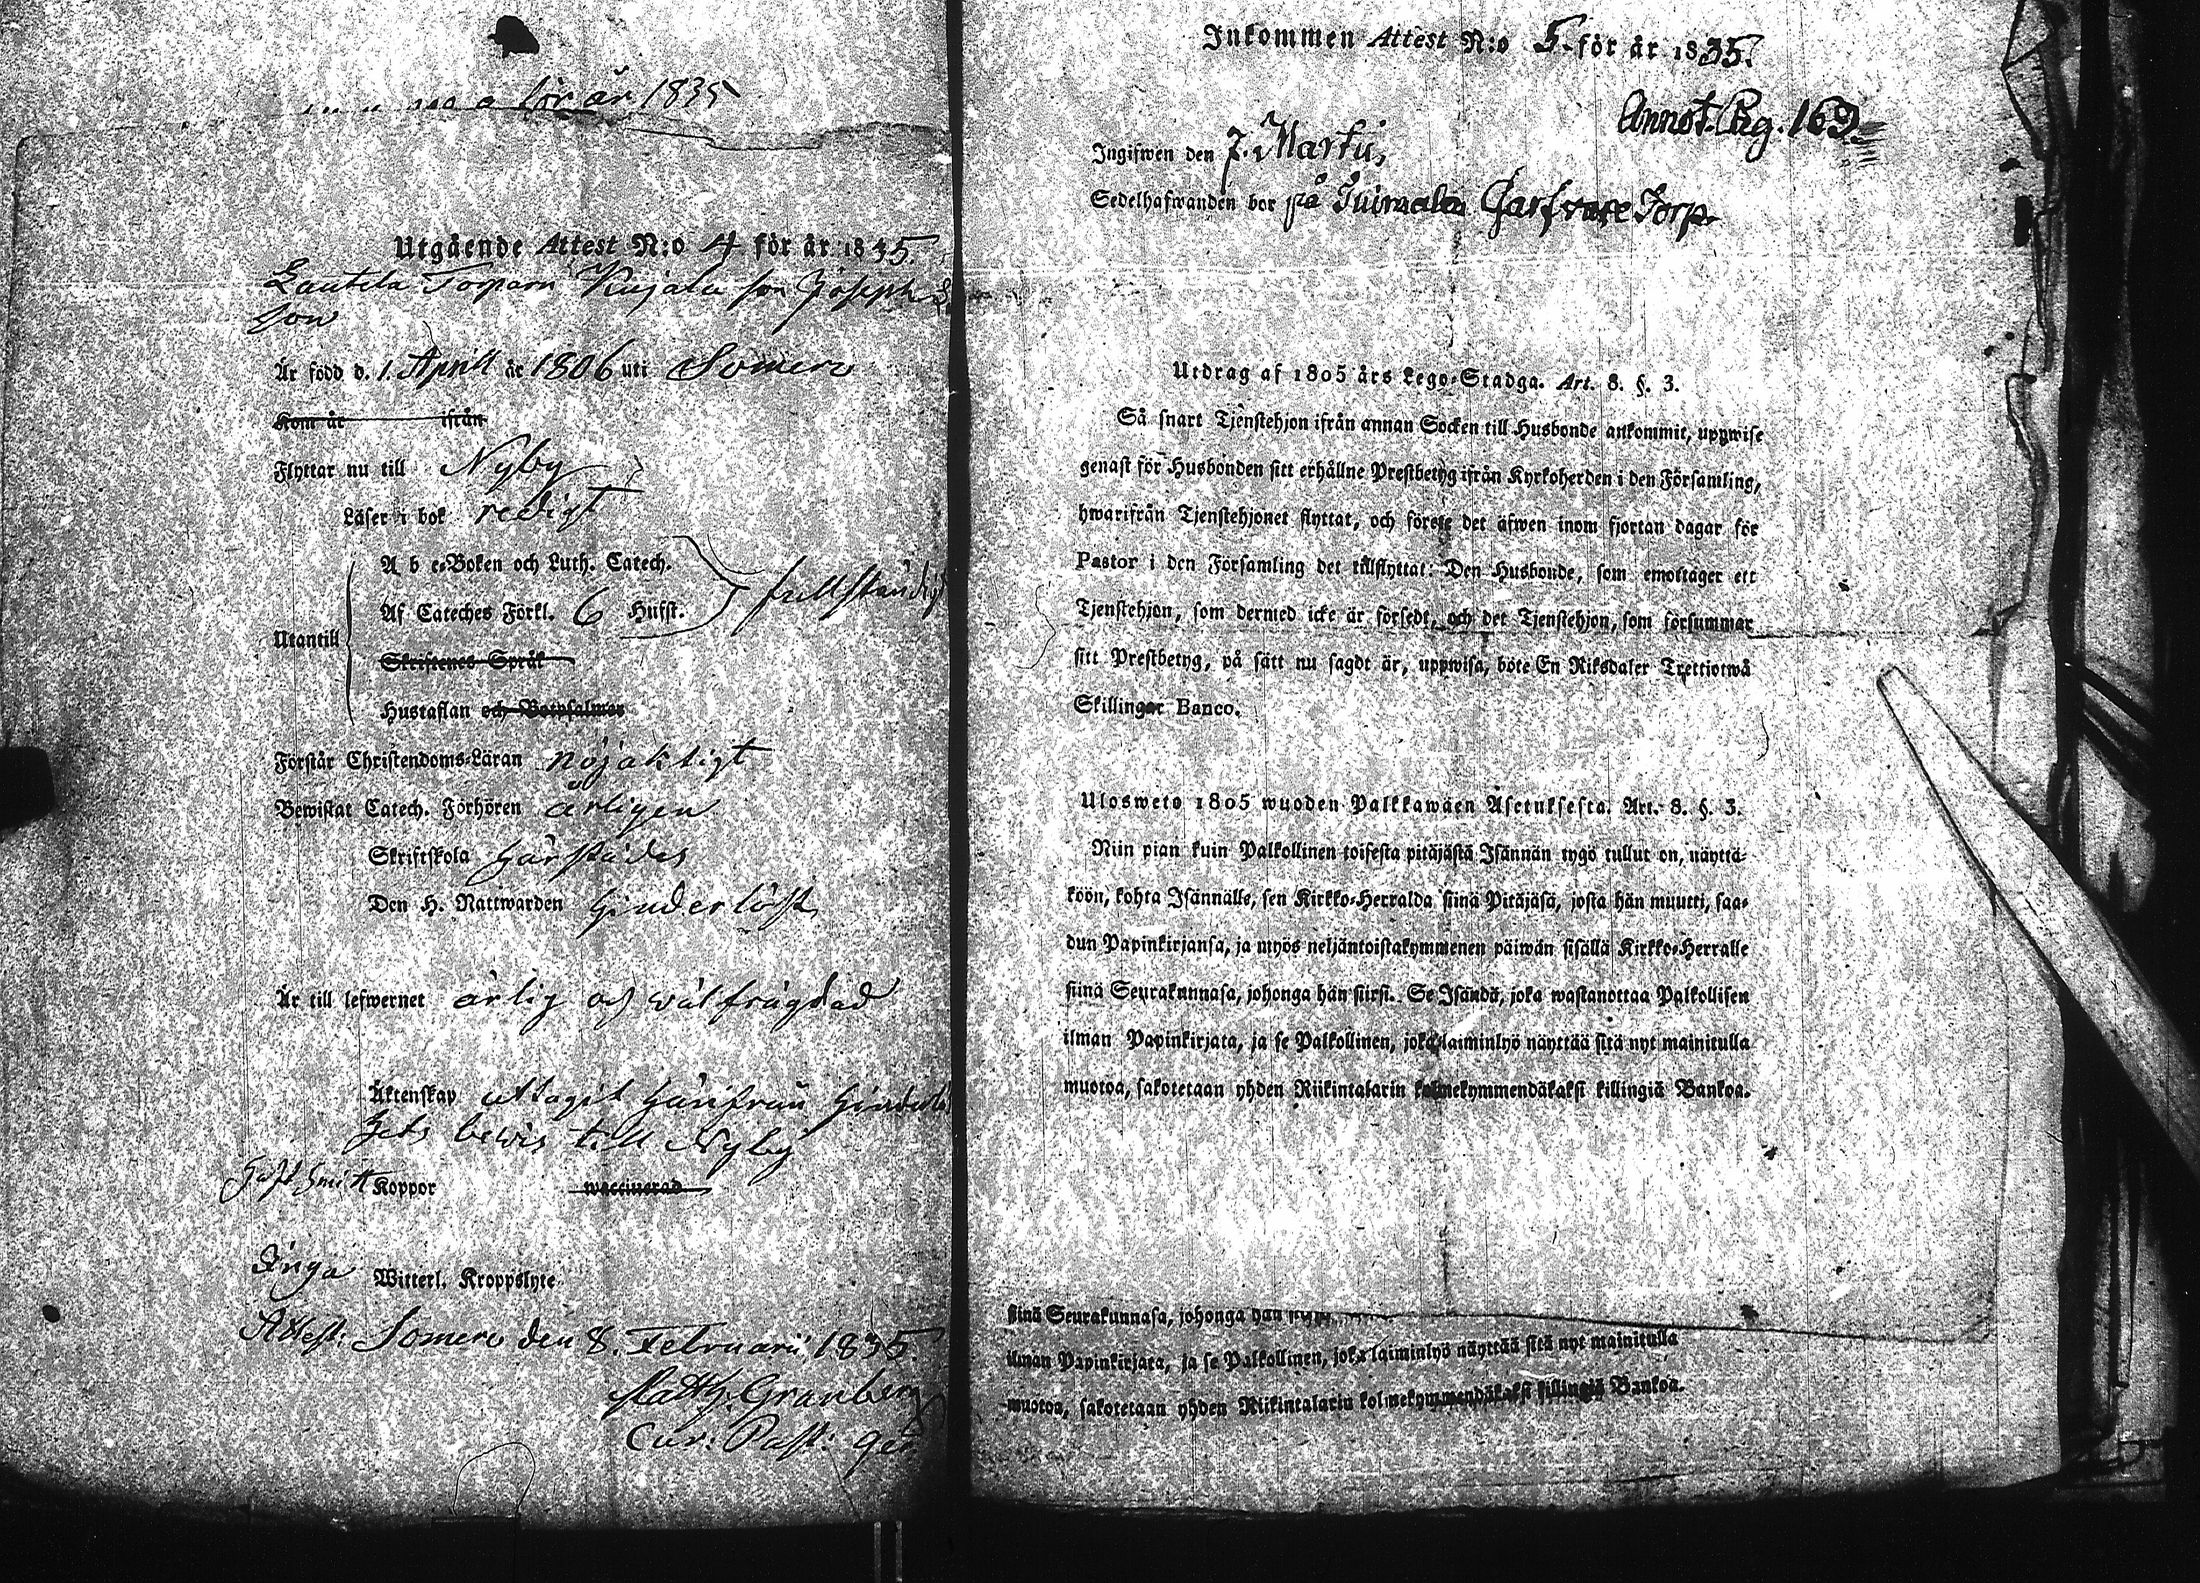 för år 1835
Utgående Attest N:o 4 för år 1835.
Lautela Torparn Kujala son Joseph
son
Är född d. 1. April år 1806 uti Somero
Kom år ifrån
Flyttar nu till Nyby
Läser i bok redigt
A b c-Boken och Luth. Catech.
Af Cateches Förkl. 6 Hufst. fullständigt
Utantill
Skriftenes Språk
Hustaflan och Botpsalmer
Förstår Christendoms-Läran nöjaktigt
Bewistat Catech. Förhören årligen
Skriftskola härstädes
Den H. Nattwarden hinderlöst
Är till lefwernet ärlig och välfrägdad
Äktenskap uttagit härifrån
bevis till Nyby
Haft Koppor waccinerad
Inga Witterl. Kroppslyte
Attest: Somero den 8. Februarii 1835.
Matth. Granberg
Cur: Past:
Inkommen Attest N:o 5. för år 1835.
Annot. Pag. 169
Ingifwen den 7. Martii,
Sedelhafwanden bor på Garfvare Torp
Utdrag af 1805 års Lego-Stadga. Art. 8. §. 3.
Så snart Tjenstehjon ifrån annan Socken till Husbonde ankommit, uppwise
genast för Husbonden sitt erhållne Prestbetyg ifrån Kyrkoherden i den Församling,
hwarifrån Tjenstehjonet flyttat, och förete det äfwen inom fjortan dagar för
Pastor i den Församling det tillflyttat: Den Husbonde, som emottager ett
Tjenstehjon, som dermed icke är försedt, och det Tjenstehjon, som försummar
sitt Prestbetyg, på sätt nu sagdt är, uppwisa, böte En Riksdaler Trettiotwå
Skillingar Banco.
Ulosweto 1805 wuoden Palkkawäen Asetuksesta. Art. 8. §. 3.
Niin pian kuin Palkollinen toisesta pitäjästä Isännän tygö tullut on, näyttä-
köön, kohta Isännälle, sen Kirkko-Herralda siinä Pitäjäsä, josta hän muutti, saa-
dun Papinkirjansa, ja myös neljäntoistakymmenen päiwän sisällä Kirkko-Herralle
siinä Seurakunnasa, johonga hän siirsi. Se Isändä, joka wastanottaa Palkollisen
ilman Papinkirjata, ja se Palkollinen, joka laiminlyö näyttää sitä nyt mainitulla
muotoa, sakotetaan yhden Riikintalarin kolmekymmendäkaksi killingiä Bankoa.
siinä Seurakunnasa, johonga hän
ilman Papinkirjata, ja se Palkollinen, joka laiminlyö näyttää sitä nyt mainitulla
muotoa, sakotetaan yhden Riikintalarin kolmekymmendäkaksi killingiä Bankoa.